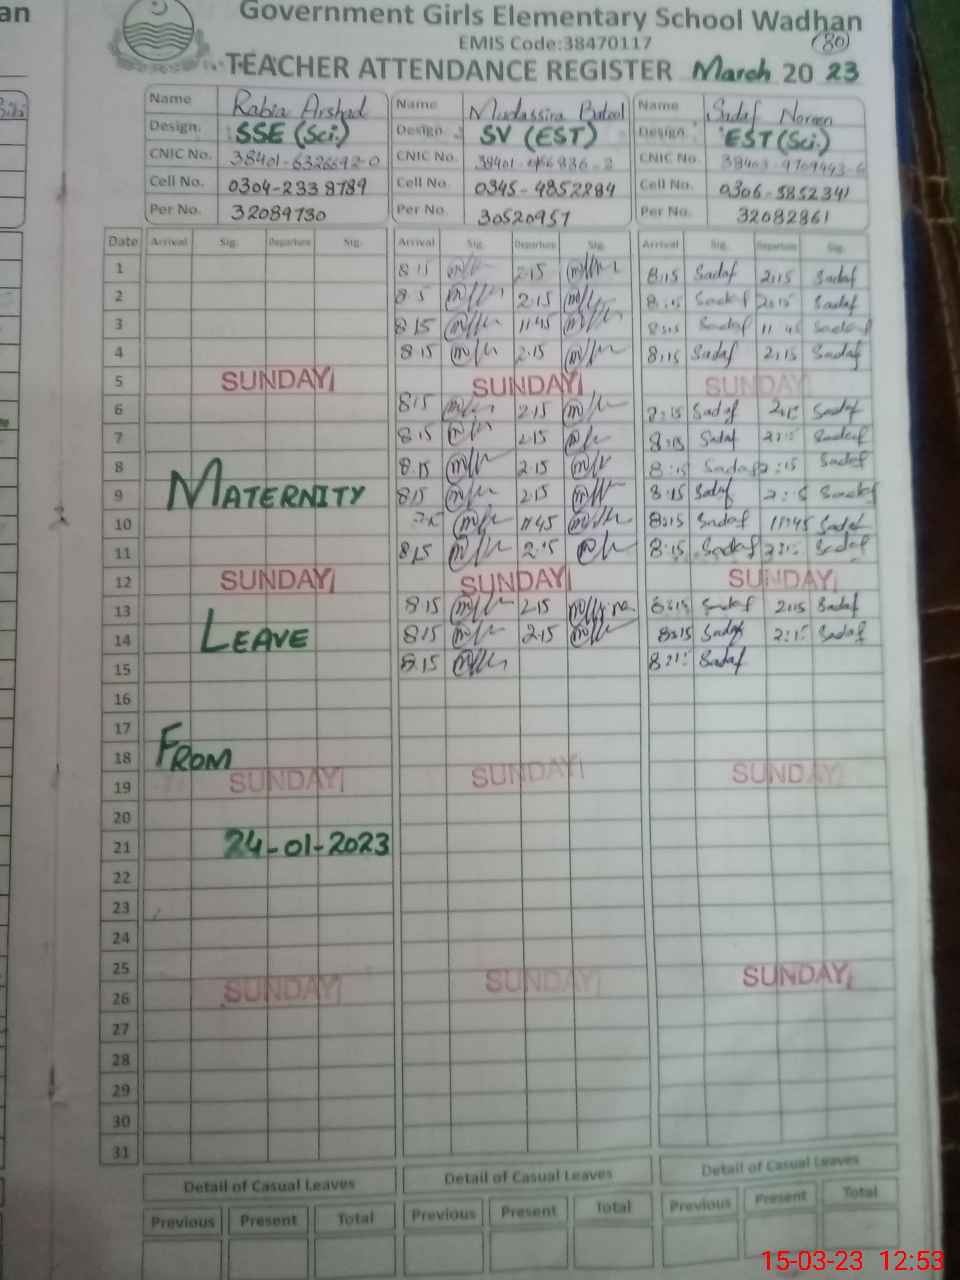 Government Girls Elementary School Wadhan
EMIS Code:38470117
(80)
TEACHER ATTENDANCE REGISTER March 20 23
Name Rabia Arshad Name Mudassira Batool Name Sadaf Noreen
Design. SSE (Sci.) Design. SV (EST) Design. EST (Sci.)
CNIC No. 38401-6326692-0 CNIC No. CNIC No.
Cell No. 0304-2338789 Cell No. 0345-4852284 Cell No. 0306-5852341
Per No. 32089730 Per No. 30520951 Per No. 32082861
Date Arrival Sig. Departure Sig. Arrival Sig. Departure Sig. Arrival Sig. Departure Sig.
1 8 15 2.15 8:15 Sadaf 2:15 Sadaf
2 8 5 2.15 8:15 Sadaf 2:15 Sadaf
3 8 15 11.45 8:15 Sadaf 11 45 Sadaf
4 8.15 2.15 8:15 Sadaf 2:15 Sadaf
5 SUNDAY SUNDAY SUNDAY
6 8.15 2.15 8:15 Sadaf 2:15 Sadaf
7 8.15 2.15 8:15 Sadaf 2:15 Sadaf
8 8.15 2.15 8:15 Sadaf 2:15 Sadaf
9 MATERNITY 8.15 2.15 8:15 Sadaf 2:15 Sadaf
10 11.45 8:15 Sadaf 11:45 Sadaf
11 8.15 2.15 8:15 Sadaf 2:15 Sadaf
12 SUNDAY SUNDAY SUNDAY
13 8.15 2.15 8:15 Sadaf 2:15 Sadaf
14 LEAVE 8.15 2.15 8:15 Sadaf 2:15 Sadaf
15 8.15 8:15 Sadaf
16
17
18 FROM
19 SUNDAY SUNDAY SUNDAY
20
21 24-01-2023
22
23
24
25
26 SUNDAY SUNDAY SUNDAY
27
28
29
30
31
Detail of Casual Leaves Detail of Casual Leaves Detail of Casual Leaves
Previous Present Total Previous Present Total Previous Present Total
15-03-23 12:53